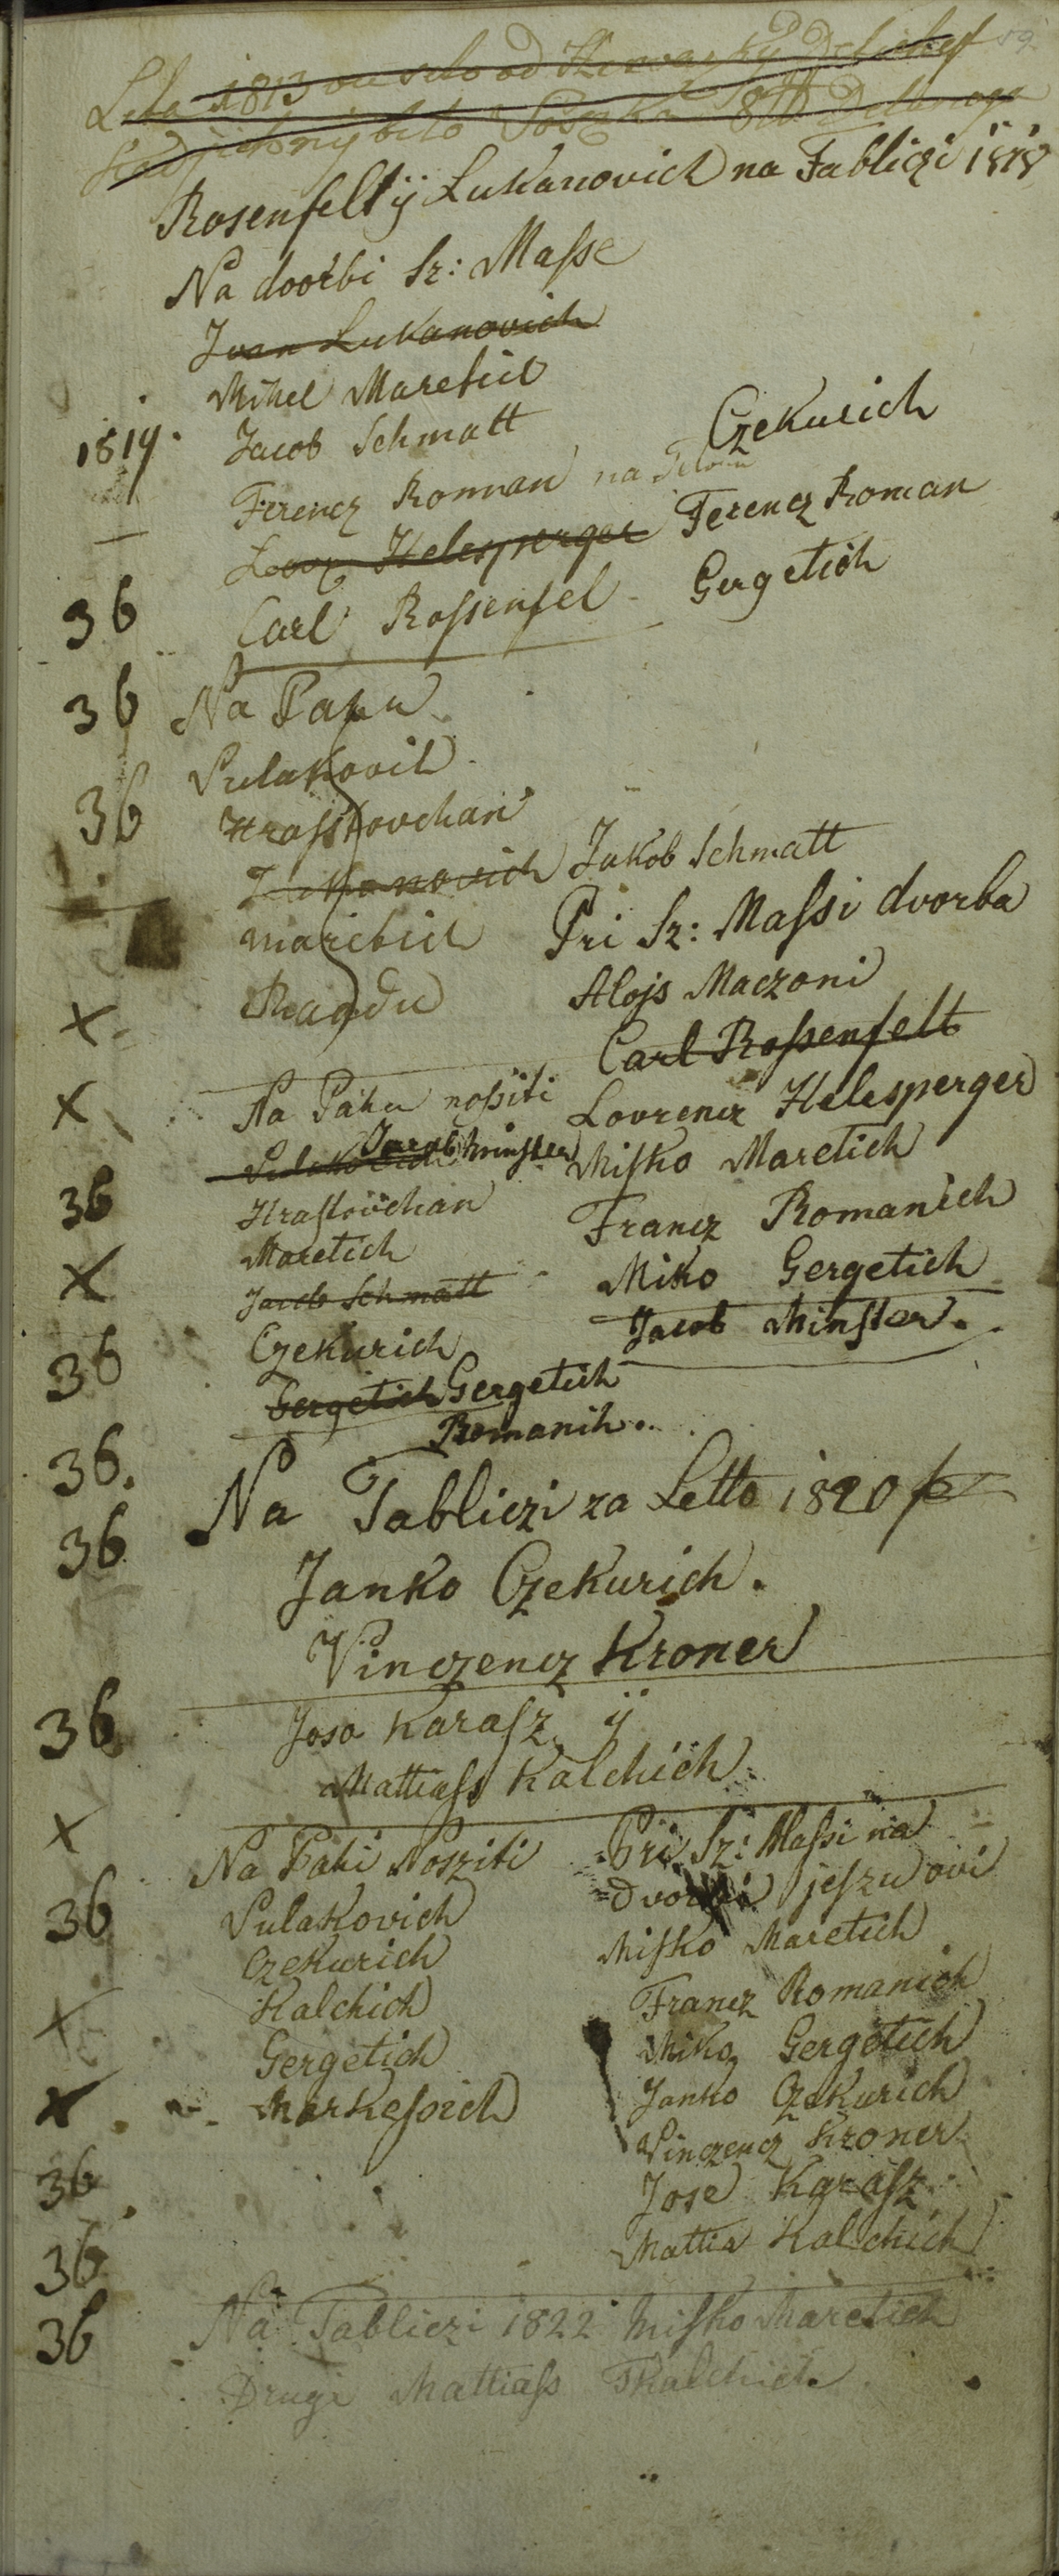 59.
Leta 1813 od
bilo
Rosenfelt ÿ Lukanovich na Tabliczi 1818
Na dvorbi Sz: Masse
Ivan Lukanovich
Mikel Maretich
1819. Jacob Schmatt
Czekurich
Ferencz Roman na
Lovr Helesperger Ferencz Roman
36 Carl Rossenfel Gergetich
36 Na Pahu
Pulakovich
36 Hrasstovchan
Lukanovich Jakob Schmatt
maretich Pri Sz: Massi dvorba
Alojs Maczoni
x
Carl Rossenfelt
x Na Pahu nossiti Lovrencz Helesperger
Pulakovich Jacob Minster Missko Maretich
36 Hrastovchan Francz Romanich
Maretich
x Jacob Schmatt Miko Gergetich
Czekurich Jacob Minster.
36 Gergetich Gergetich
Romanih..
36. Na Tabliczi za Letto 1820
36 Janko Czekurich.
Vinczencz Kroner
36 Joso Karasz ÿ
Mattiass Kalchich
x Na Pahi Nosziti Pri Sz: Massi na
dvorbi jeszu ovi
36 Pulakovich Missko Maretich
Czekurich Francz Romanich
x Kalchich Miko Gergetich
Gergetich Janko Czekurich
x Markessich Vinczencz Kroner
36 Jose Karasz
36 Mattia Kalchich
36 Na Tabliczi 1822 Missko Maretich
Drugi Mattiass Tkalchich